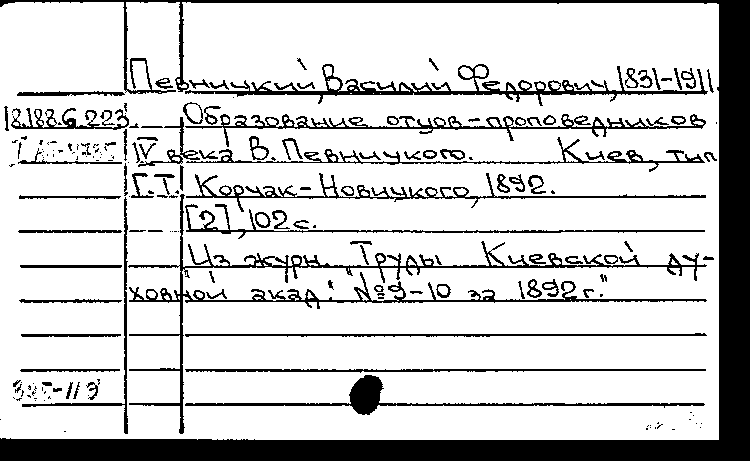 Певницкий, Василий Федорович, 1831-1911.
18.188.6.223. Образование отцов-проповедников
IV века В. Певницкого. Киев, тип.
Г.Т. Корчак-Новицкого, 1892.
[2], 102 с.
Из журн. "Труды Киевской ду-
ховной акад." №9-10 за 1892 г."